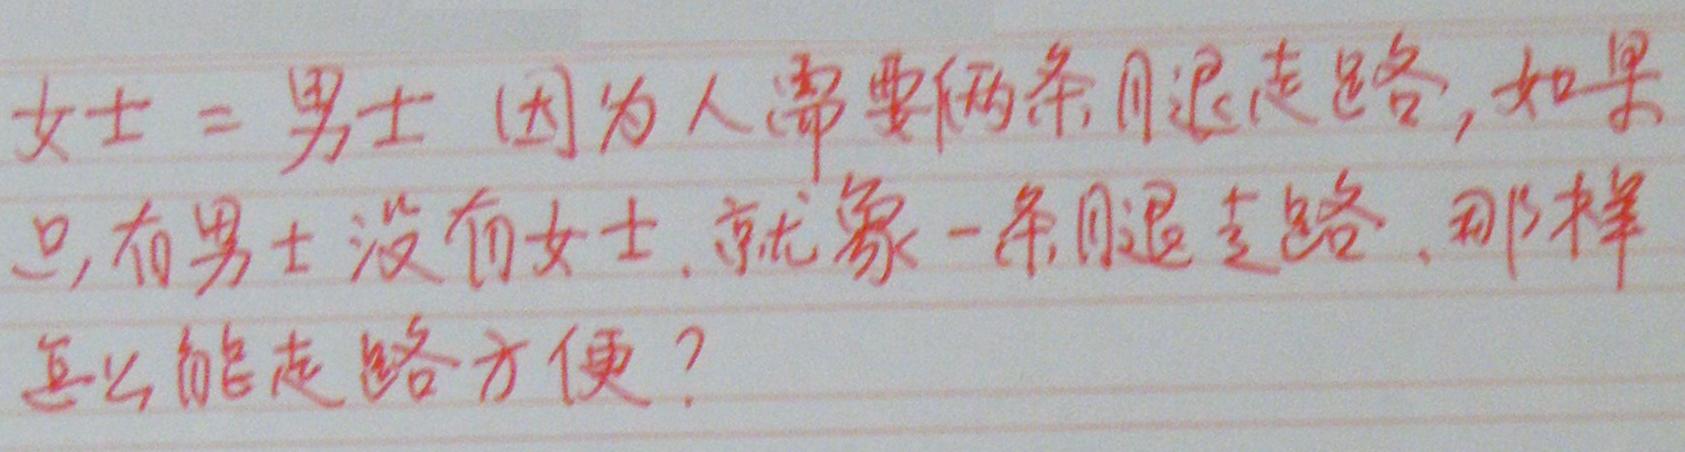 女士=男士 因为人需要俩条腿走路,如果
只,有男士没有女士.就象一条腿走路.那样
怎么能走路方便?